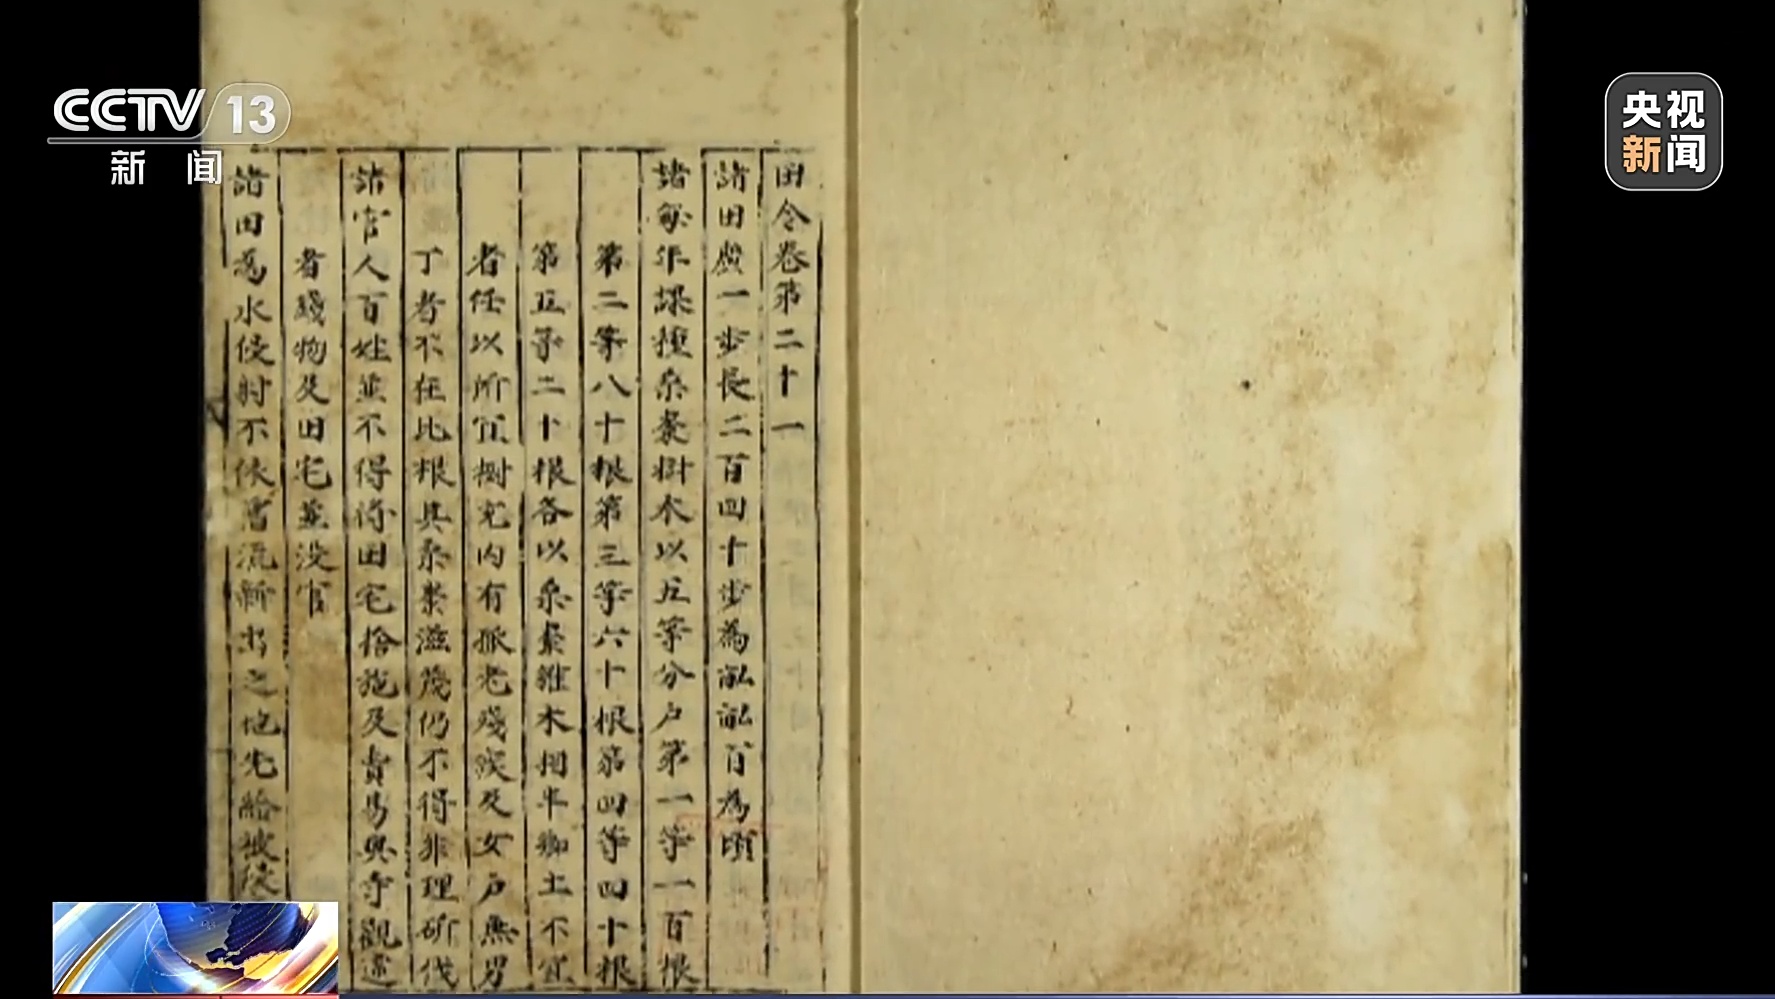 CCTV 13
新闻
央视
新闻
田令卷第二十一
諸田廣一步長二百四十步為畝畝百為頃
諸每年課種桑棗樹木以五等分户第一等一百根
第二等八十根第三等六十根第四等四十根
第五等二十根各以桑棗雜木相半鄉土不宜
者任以所宜樹充内有孤老殘疾及女户無男
丁者不在此根其桑棗滋茂仍不得非理斫伐
諸官人百姓並不得將田宅捨施及賣易與寺觀違
者錢物及田宅並没官
諸田為水侵射不依舊流新出之地先給被侵